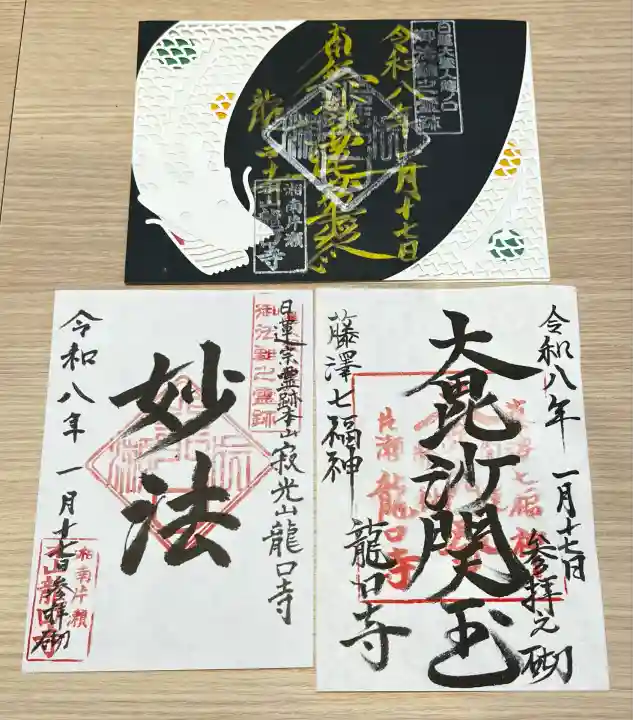 日蓮大聖人龍ノ口
御法難之霊跡
令和八年一月十七日
南無妙法蓮華経
龍口寺
湘南片瀬
龍口寺
御法難之霊跡
日蓮宗霊跡本山寂光山龍口寺
妙法
令和八年一月十七日参拝砌
湘南片瀬
龍口寺
令和八年一月十七日参拝之砌
大毘沙門天王
藤澤七福神
龍口寺
片瀬龍口寺